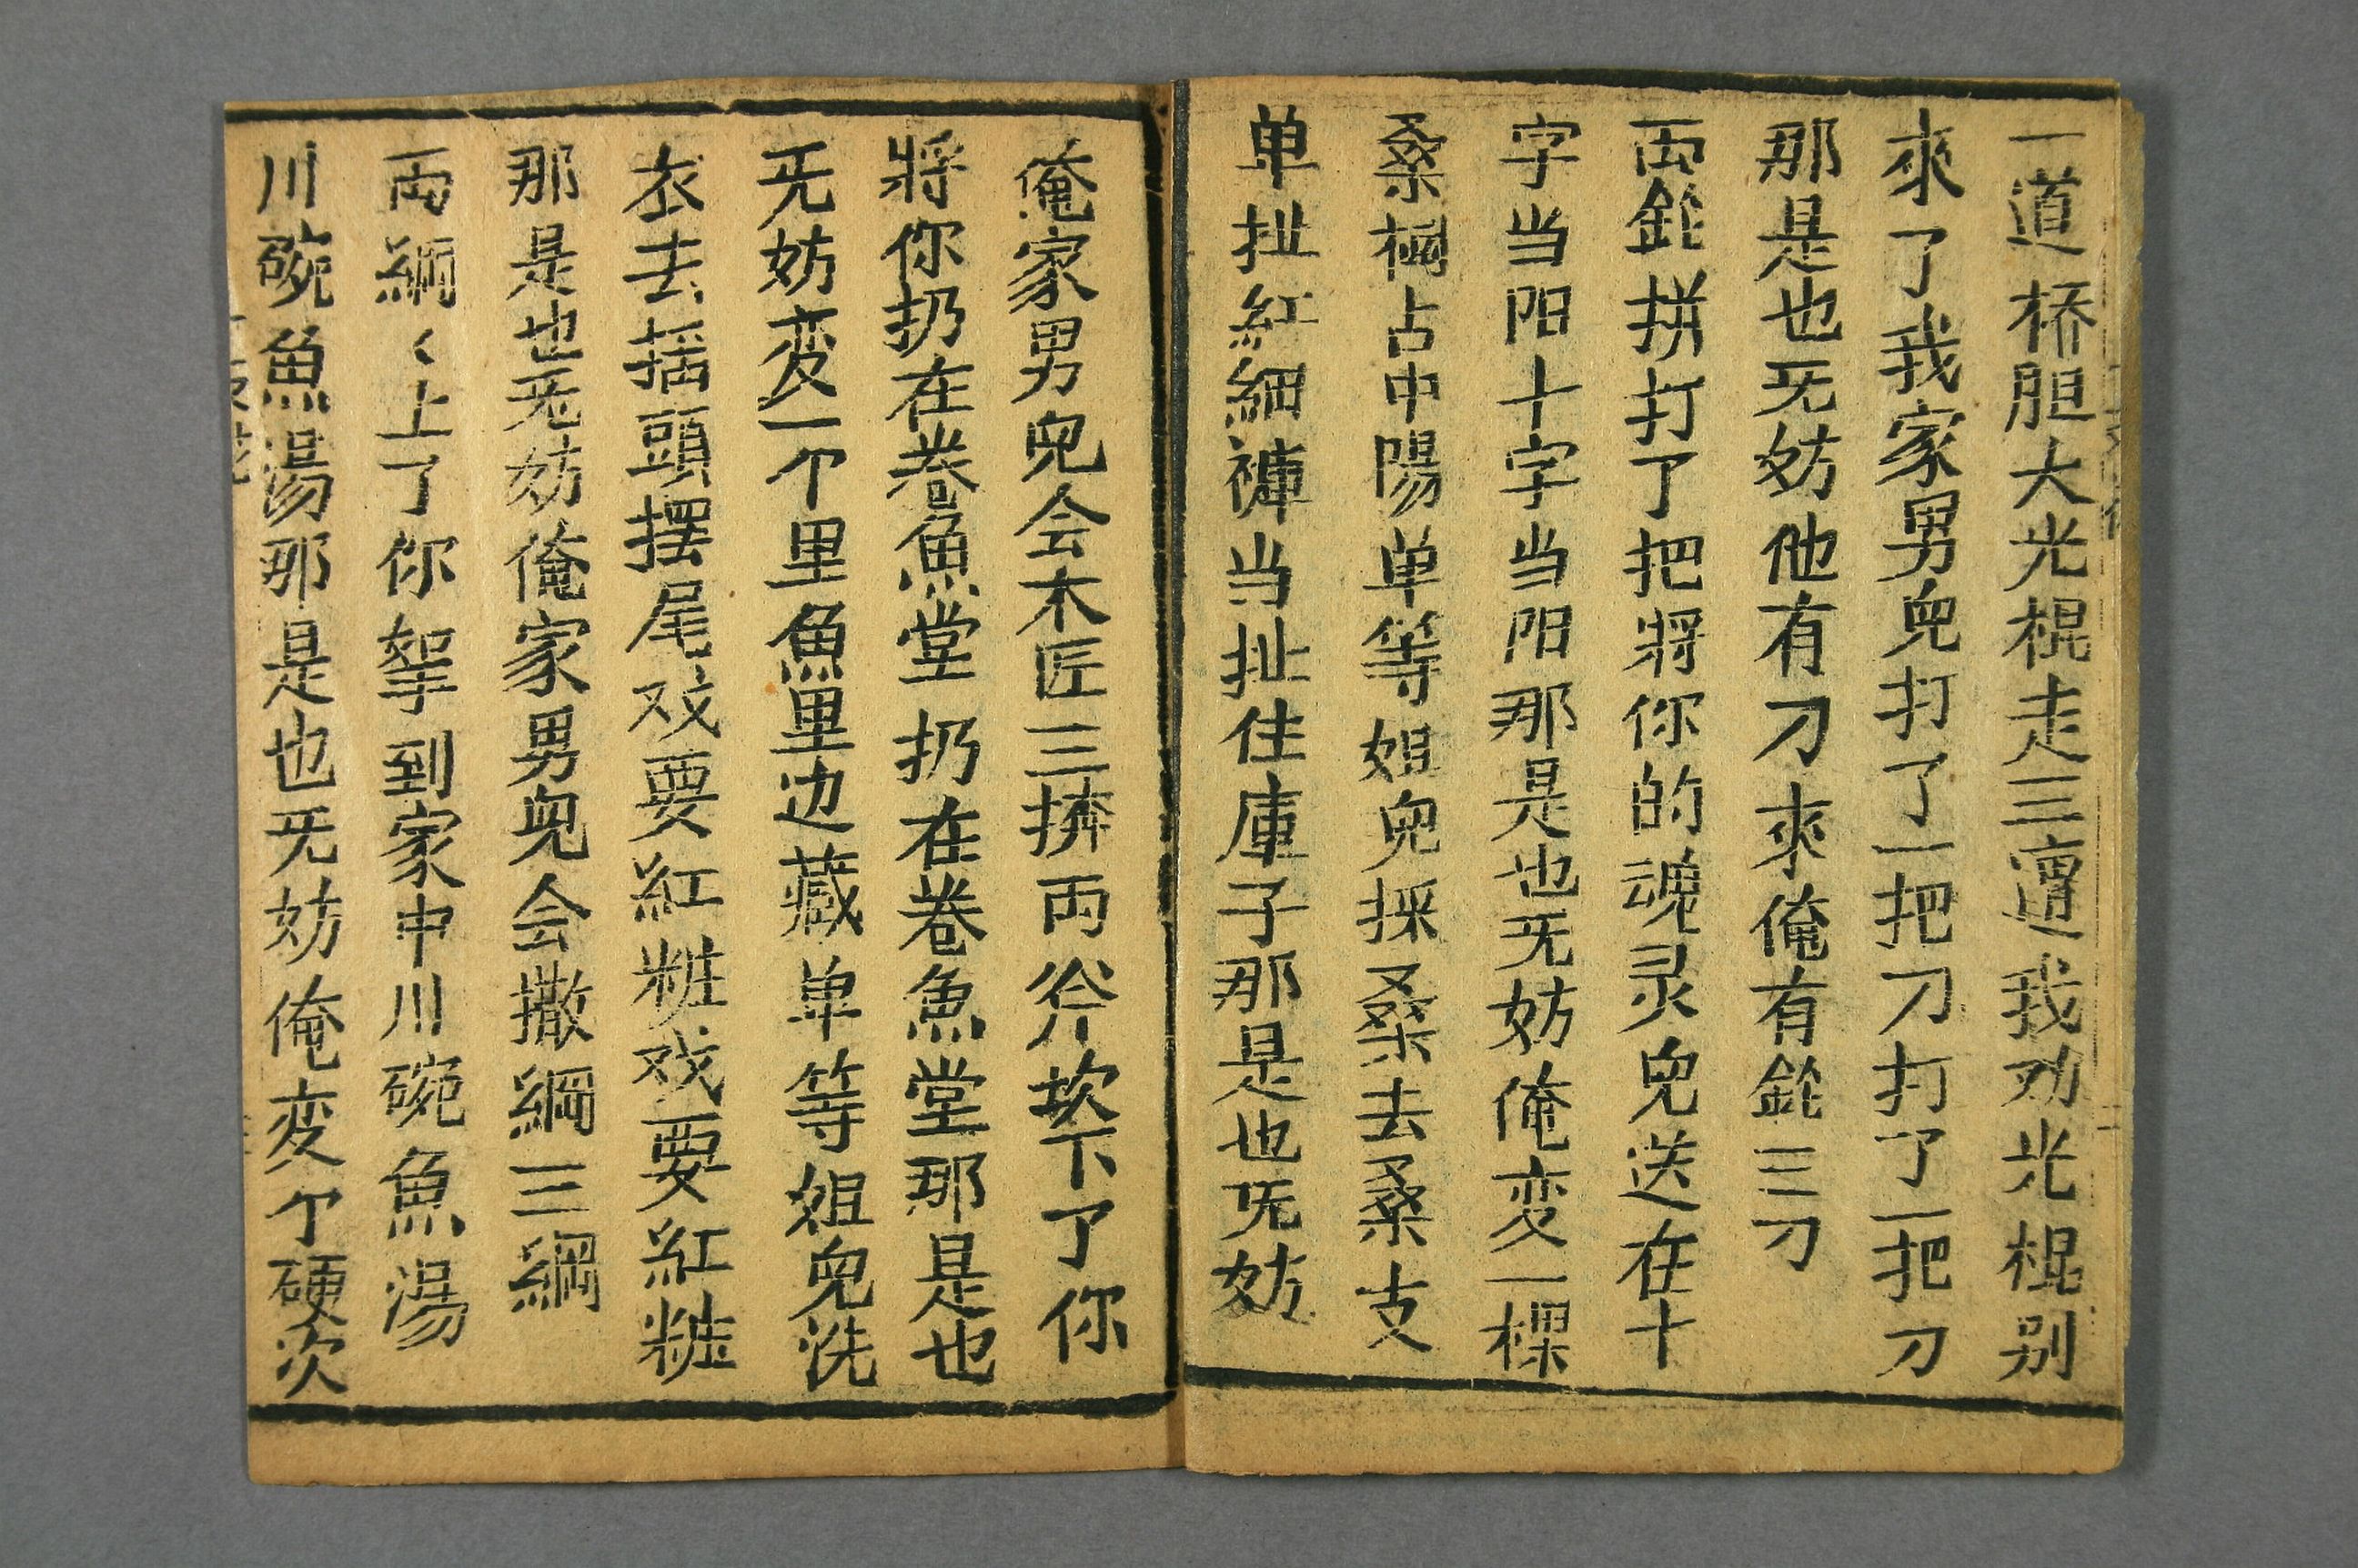 一道桥胆大光棍走三遭我劝光棍别
來了我家男皃打了一把刀打了一把刀
那是也旡妨他有刀來俺有鎗三刀
両鎗拼打了把將你的魂灵皃送在十
字当阳十字当阳那是也旡妨俺变一棵
桑樹占中陽单等姐皃採桑去桑支
单扯紅細褲当扯住庫子那是也旡妨
俺家男皃会木匠三擠両斧坎下了你
將你扔在卷魚堂扔在卷魚堂那是也
旡妨変一个里魚里边藏单等姐皃洗
衣去揺頭摆尾戏要紅粧戏要紅粧
那是也旡妨俺家男皃会撒網三網
両網〻上了你拏到家中川碗魚湯
川碗魚湯那是也旡妨俺変个硬次